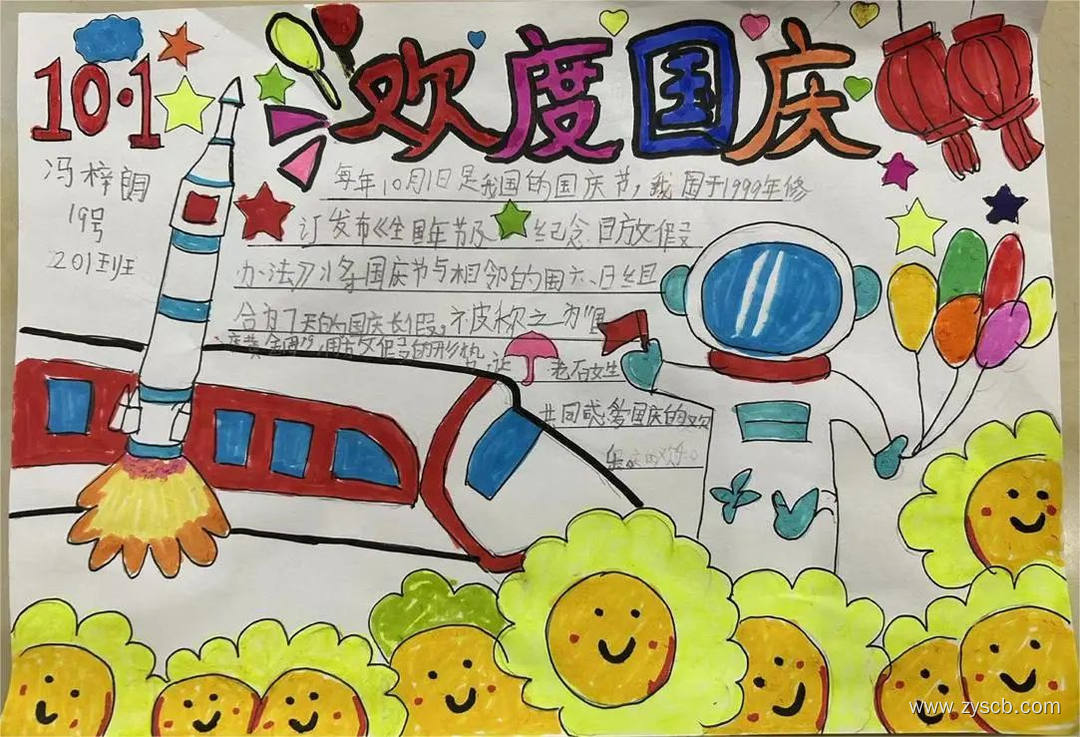 欢度国庆
10·1
冯梓朗
19号
201班
每年10月1日是我国的国庆节,我国于1999年修
订发布《全国年节及纪念日放假
办法》将国庆节与相邻的周六、日组
合为7天的国庆长假,
黄金周"
的形势
老师
共同感受国庆的欢
乐。
www.zyscb.com